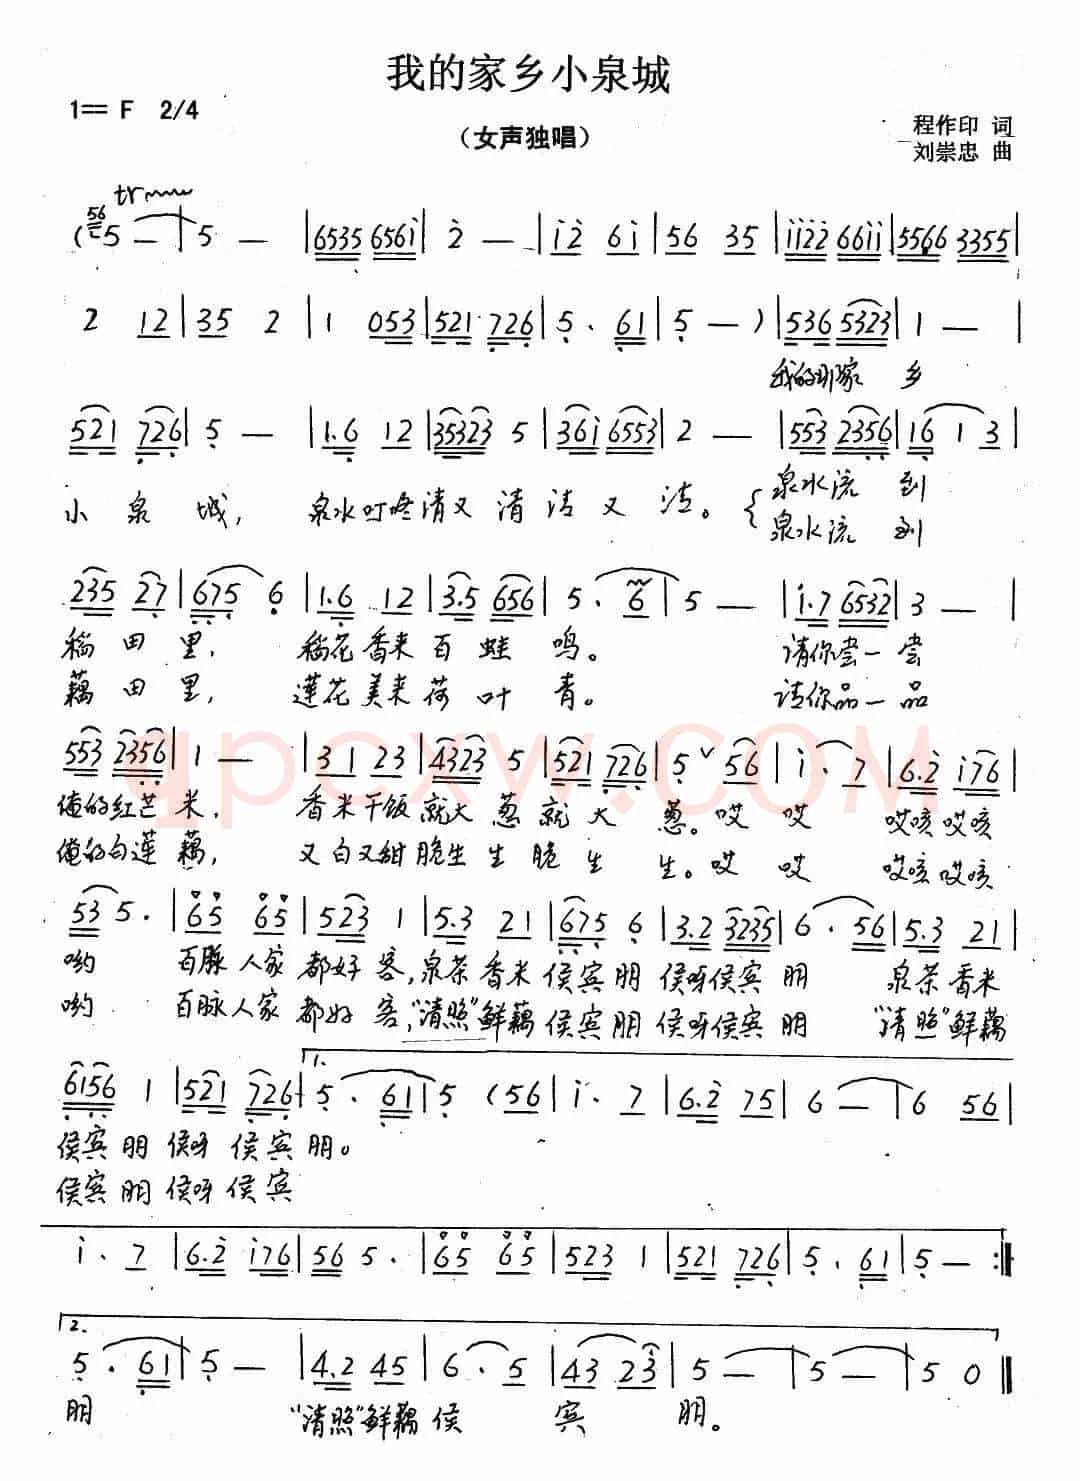 我的家乡小泉城
1== F 2/4
（女声独唱）
程作印 词
刘崇忠 曲
tr
(56 5 — | 5 — | 6535 6561 | 2 — | 12 61 | 56 35 | 1122 6611 | 5566 3355 |
2 12 | 35 2 | 1 053 | 521 726 | 5 . 61 | 5 — ) | 536 5323 | 1 — |
我的那家 乡
521 726 | 5 — | 1.6 12 | 35323 5 | 361 6553 | 2 — | 553 2356 | 16 1 3 |
小 泉 城， 泉水叮咚清又 清 洁 又 洁。 { 泉水流 到
泉水流 到
235 27 | 675 6 | 1.6 12 | 3.5 656 | 5 . 6 | 5 — | 1.7 6532 | 3 — |
稻 田 里， 稻花香来百 蛙 鸣。 请你尝一尝
藕 田 里， 莲花美来荷 叶 青。 请你品一品
553 2356 | 1 — | 3 1 23 | 4323 5 | 521 726 | 5 ˅ 56 | 1 . 7 | 6.2 176 |
俺的红芒 米， 香米干饭就大 葱就 大 葱。哎 哎 哎咳哎咳
俺的白莲 藕， 又白又甜脆生 生脆 生 生。哎 哎 哎咳哎咳
53 5. | 65 65 | 523 1 | 5.3 21 | 675 6 | 3.2 3235 | 6 . 56 | 5.3 21 |
哟 百脉人家 都好 客，泉茶香米 侯宾朋 侯呀侯宾 朋 泉茶香米
哟 百脉人家 都好 客，“清照”鲜藕 侯宾朋 侯呀侯宾 朋 “清照”鲜藕
1.
6156 1 | 521 726 | 5 . 61 | 5 (56 | 1 . 7 | 6.2 75 | 6 — | 6 56 |
侯宾 朋 侯呀 侯 宾 朋。
侯宾 朋 侯呀 侯 宾
1 . 7 | 6.2 176 | 56 5. | 65 65 | 523 1 | 521 726 | 5 . 61 | 5 — :||
2.
5 . 61 | 5 — | 4.2 45 | 6 . 5 | 43 23 | 5 — | 5 — | 5 0 ||
朋 “清照”鲜藕 侯 宾 朋。
qpcxw.com